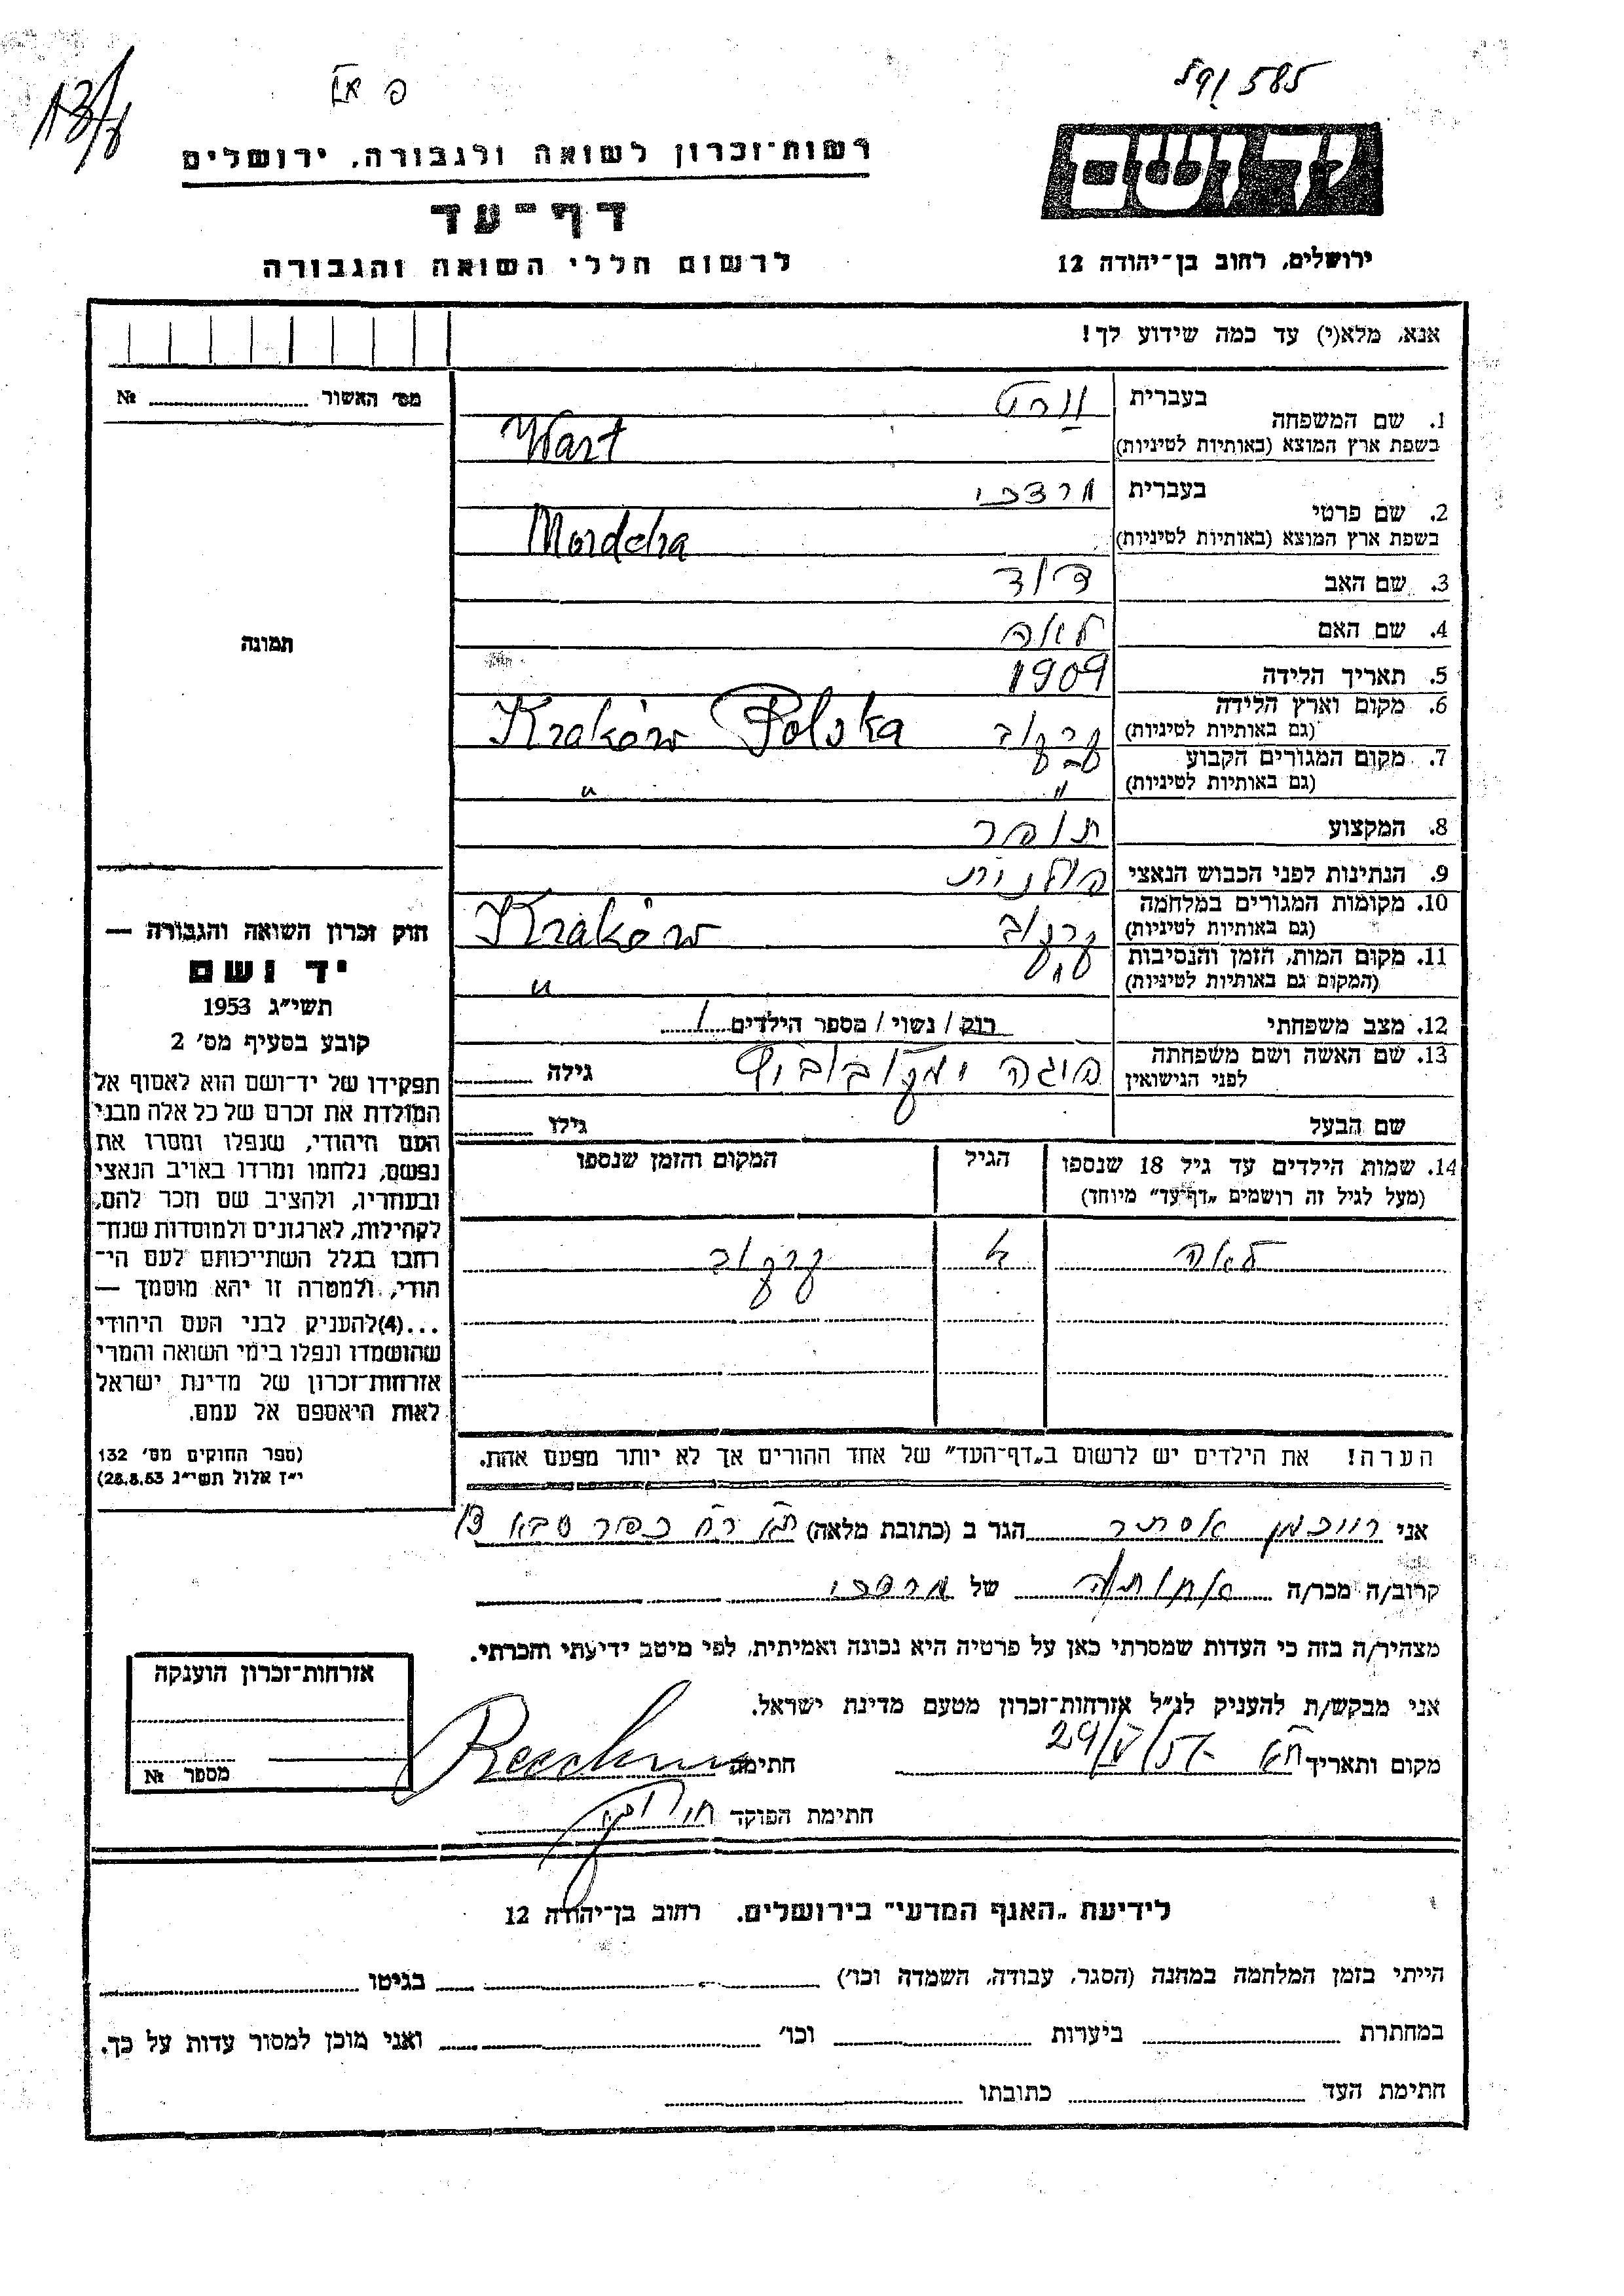 585
רשות־זכרון לשואה ולגבורה, ירושלים
דף־עד
לרשום חללי השואה והגבורה
יד ושם
ירושלים, רחוב בן־יהודה 12
אנא, מלא(י) עד כמה שידוע לך!
מס׳ האשור № 
1. שם המשפחה
בעברית וורט
בשפת ארץ המוצא (באותיות לטיניות) Wart
2. שם פרטי
בעברית מרדכי
בשפת ארץ המוצא (באותיות לטיניות) Mordcha
3. שם האב דוד
4. שם האם לאה
5. תאריך הלידה 1909
6. מקום וארץ הלידה
(גם באותיות לטיניות) קרקוב Kraków Polska
7. מקום המגורים הקבוע
(גם באותיות לטיניות) " "
8. המקצוע תופר
9. הנתינות לפני הכבוש הנאצי פולנית
10. מקומות המגורים במלחמה
(גם באותיות לטיניות) קרקוב Kraków
11. מקום המות, הזמן והנסיבות
(המקום גם באותיות לטיניות) " "
12. מצב משפחתי רוק / נשוי / מספר הילדים 1
13. שם האשה ושם משפחתה
לפני הנישואין פיגה יעקובוביץ גילה
שם הבעל גילו
14. שמות הילדים עד גיל 18 שנספו הגיל המקום והזמן שנספו
(מעל לגיל זה רושמים „דף־עד״ מיוחד)
לאה קרקוב
הערה! את הילדים יש לרשום ב„דף־העד״ של אחד ההורים אך לא יותר מפעם אחת.
תמונה
חוק זכרון השואה והגבורה —
יד ושם
תשי״ג 1953
קובע בסעיף מס׳ 2
תפקידו של יד־ושם הוא לאסוף אל
המולדת את זכרם של כל אלה מבני
העם היהודי, שנפלו ומסרו את
נפשם, נלחמו ומרדו באויב הנאצי
ובעוזריו, ולהציב שם וזכר להם,
לקהילות, לארגונים ולמוסדות שנח־
רבו בגלל השתייכותם לעם הי־
הודי, ולמטרה זו יהא מוסמך —
...(4)להעניק לבני העם היהודי
שהושמדו ונפלו בימי השואה והמרי
אזרחות־זכרון של מדינת ישראל
לאות היאספם אל עמם.
(ספר החוקים מס׳ 132
י״ז אלול תשי״ג 28.8.53)
אני רייכמן אסתר הגר ב (כתובת מלאה) ת״א רח׳ כפר סבא 13
קרוב/ה מכר/ה אחותו של מרדכי
מצהיר/ה בזה כי העדות שמסרתי כאן על פרטיה היא נכונה ואמיתית, לפי מיטב ידיעתי והכרתי.
אני מבקש/ת להעניק לנ״ל אזרחות־זכרון מטעם מדינת ישראל.
מקום ותאריך ת״א 29/V/57 חתימה
חתימת הפוקד
אזרחות־זכרון הוענקה
מספר №
לידיעת „האגף המדעי״ בירושלים, רחוב בן־יהודה 12
הייתי בזמן המלחמה במחנה (הסגר, עבודה, השמדה וכו׳) בגיטו
במחתרת ביערות וכו׳ ואני מוכן למסור עדות על כך.
חתימת העד כתובתו